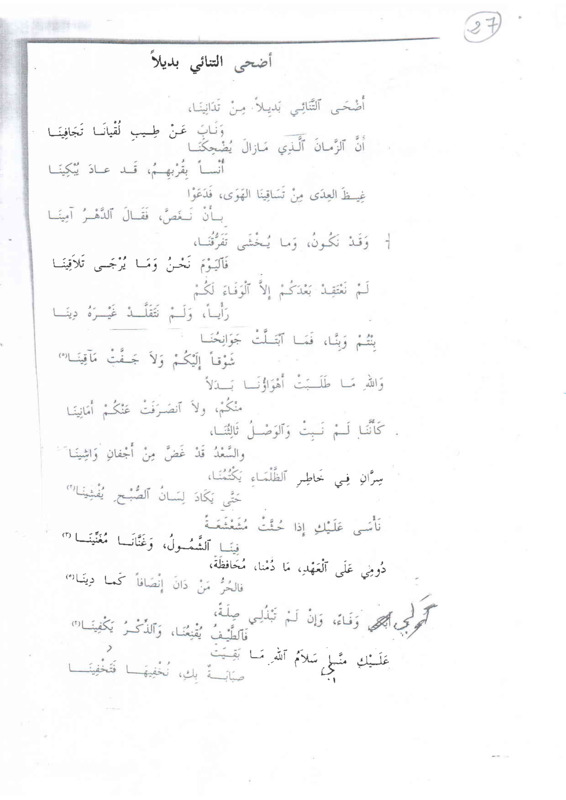 27
أضحى التنائي بديلاً
أَضْحَى ٱلتَّنَائِي بَدِيلاً مِنْ تَدَانِينَا،
وَنَابَ عَنْ طِيبِ لُقْيَانَا تَجَافِينَا
أَنَّ ٱلزَّمَانَ ٱلَّذِي مَازالَ يُضْحِكُنَا
أُنْساً بِقُرْبِهِمُ، قَد عادَ يُبْكِينَا
غِيظَ العِدَى مِنْ تَسَاقِينَا الهَوَى، فَدَعَوْا
بِأَنْ نَغَصَّ، فَقَالَ ٱلدَّهْرُ آمِينَا
وَقَدْ نَكُونُ، وَما يُخْشَى تَفَرُّقُنَا،
فَٱليَوْمَ نَحْنُ وَمَا يُرْجَى تَلاَقِينَا
لَمْ نَعْتَقِدْ بَعْدَكُمْ إِلاَّ ٱلْوَفَاءَ لَكُمْ
رَأْياً، وَلَمْ نَتَقَلَّدْ غَيْرَهُ دِينَا
بِنْتُمْ وَبِنَّا، فَمَا ٱبْتَلَّتْ جَوَانِحُنَا
شَوْقاً إِلَيْكُمْ وَلاَ جَفَّتْ مَآقِينَا
وَاللهِ مَا طَلَبَتْ أَهْوَاؤُنَا بَدَلاً
مِنْكُمْ، ولاَ ٱنصَرَفَتْ عَنْكُمْ أَمَانِينَا
كَأَنَّنَا لَمْ نَبِتْ وَٱلوَصْلُ ثَالِثُنَا،
والسَّعْدُ قَدْ غَضَّ مِنْ أَجْفانِ وَاشِينَا
سِرَّانِ فِي خَاطِرِ ٱلظَّلْمَاءِ يَكْتُمُنَا،
حَتَّى يَكَادَ لِسَانُ ٱلصُّبْحِ يُفْشِينَا
نَأْسَى عَلَيْكِ إِذا حُثَّتْ مُشَعْشَعَةً
فِينَا ٱلشَّمُولُ، وَغَنَّانَا مُغَنِّينَا
دُومِي عَلَى ٱلْعَهْدِ، مَا دُمْنَا، مُحَافِظَةً،
فالحُرُّ مَنْ دَانَ إِنْصَافاً كَما دِينَا
وَفَاءً، وَإِنْ لَمْ تَبْذُلِي صِلَةً،
فَٱلطَّيْفُ يُقْنِعُنَا، وَٱلذِّكْرُ يَكْفِينَا
عَلَيْكِ مِنِّي سَلاَمُ ٱللهِ مَا بَقِيَتْ
صَبَابَةٌ بِكِ، نُخْفِيهَا فَتُخْفِينَا